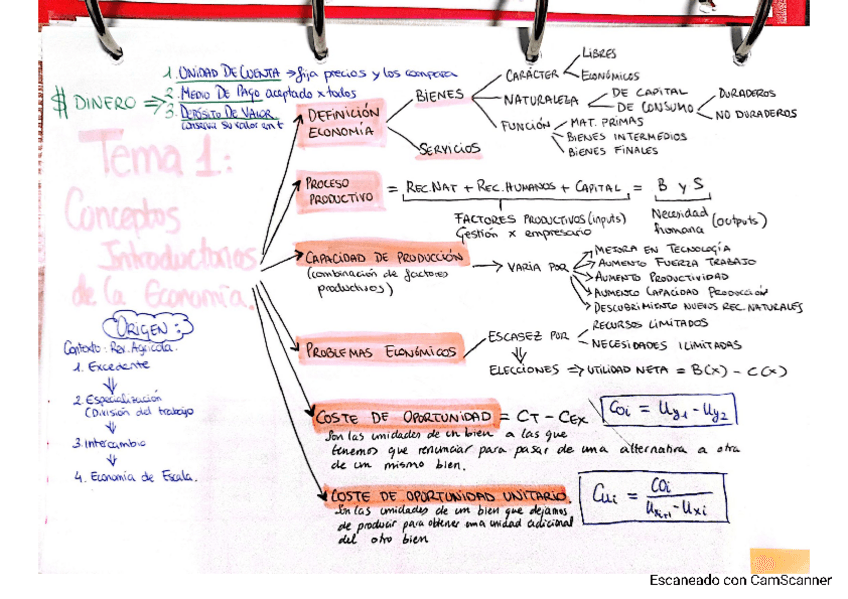 $ DINERO ⇒
1. UNIDAD DE CUENTA → fija precios y los compara
2. MEDIO DE PAGO aceptado x todos
3. DEPÓSITO DE VALOR
conserva su valor en t
Tema 1:
Conceptos
Introductorios
de la Economía.
DEFINICIÓN
ECONOMÍA
BIENES
CARÁCTER
LIBRES
ECONÓMICOS
NATURALEZA
DE CAPITAL
DE CONSUMO
DURADEROS
NO DURADEROS
FUNCIÓN
MAT. PRIMAS
BIENES INTERMEDIOS
BIENES FINALES
SERVICIOS
PROCESO
PRODUCTIVO
= REC.NAT + REC.HUMANOS + CAPITAL = B y S
FACTORES PRODUCTIVOS (inputs)
Gestión x empresario
Necesidad
humana
(outputs)
CAPACIDAD DE PRODUCCIÓN
(combinación de factores
productivos)
→ VARÍA POR
MEJORA EN TECNOLOGÍA
AUMENTO FUERZA TRABAJO
AUMENTO PRODUCTIVIDAD
AUMENTO CAPACIDAD PRODUCCIÓN
DESCUBRIMIENTO NUEVOS REC. NATURALES
PROBLEMAS ECONÓMICOS
ESCASEZ POR
RECURSOS LIMITADOS
NECESIDADES ILIMITADAS
ELECCIONES ⇒ UTILIDAD NETA = B(x) - C(x)
ORIGEN:
Contexto: Rev. Agrícola.
1. Excedente
2. Especialización
(División del trabajo
3. Intercambio
4. Economía de Escala.
COSTE DE OPORTUNIDAD = CT - CEX
COi = Uy1 - Uy2
Son las unidades de un bien a las que
tenemos que renunciar para pasar de una alternativa a otra
de un mismo bien.
COSTE DE OPORTUNIDAD UNITARIO.
Son las unidades de un bien que dejamos
de producir para obtener una unidad adicional
del otro bien
Cui = COi / Uxi+1 - Uxi
Escaneado con CamScanner